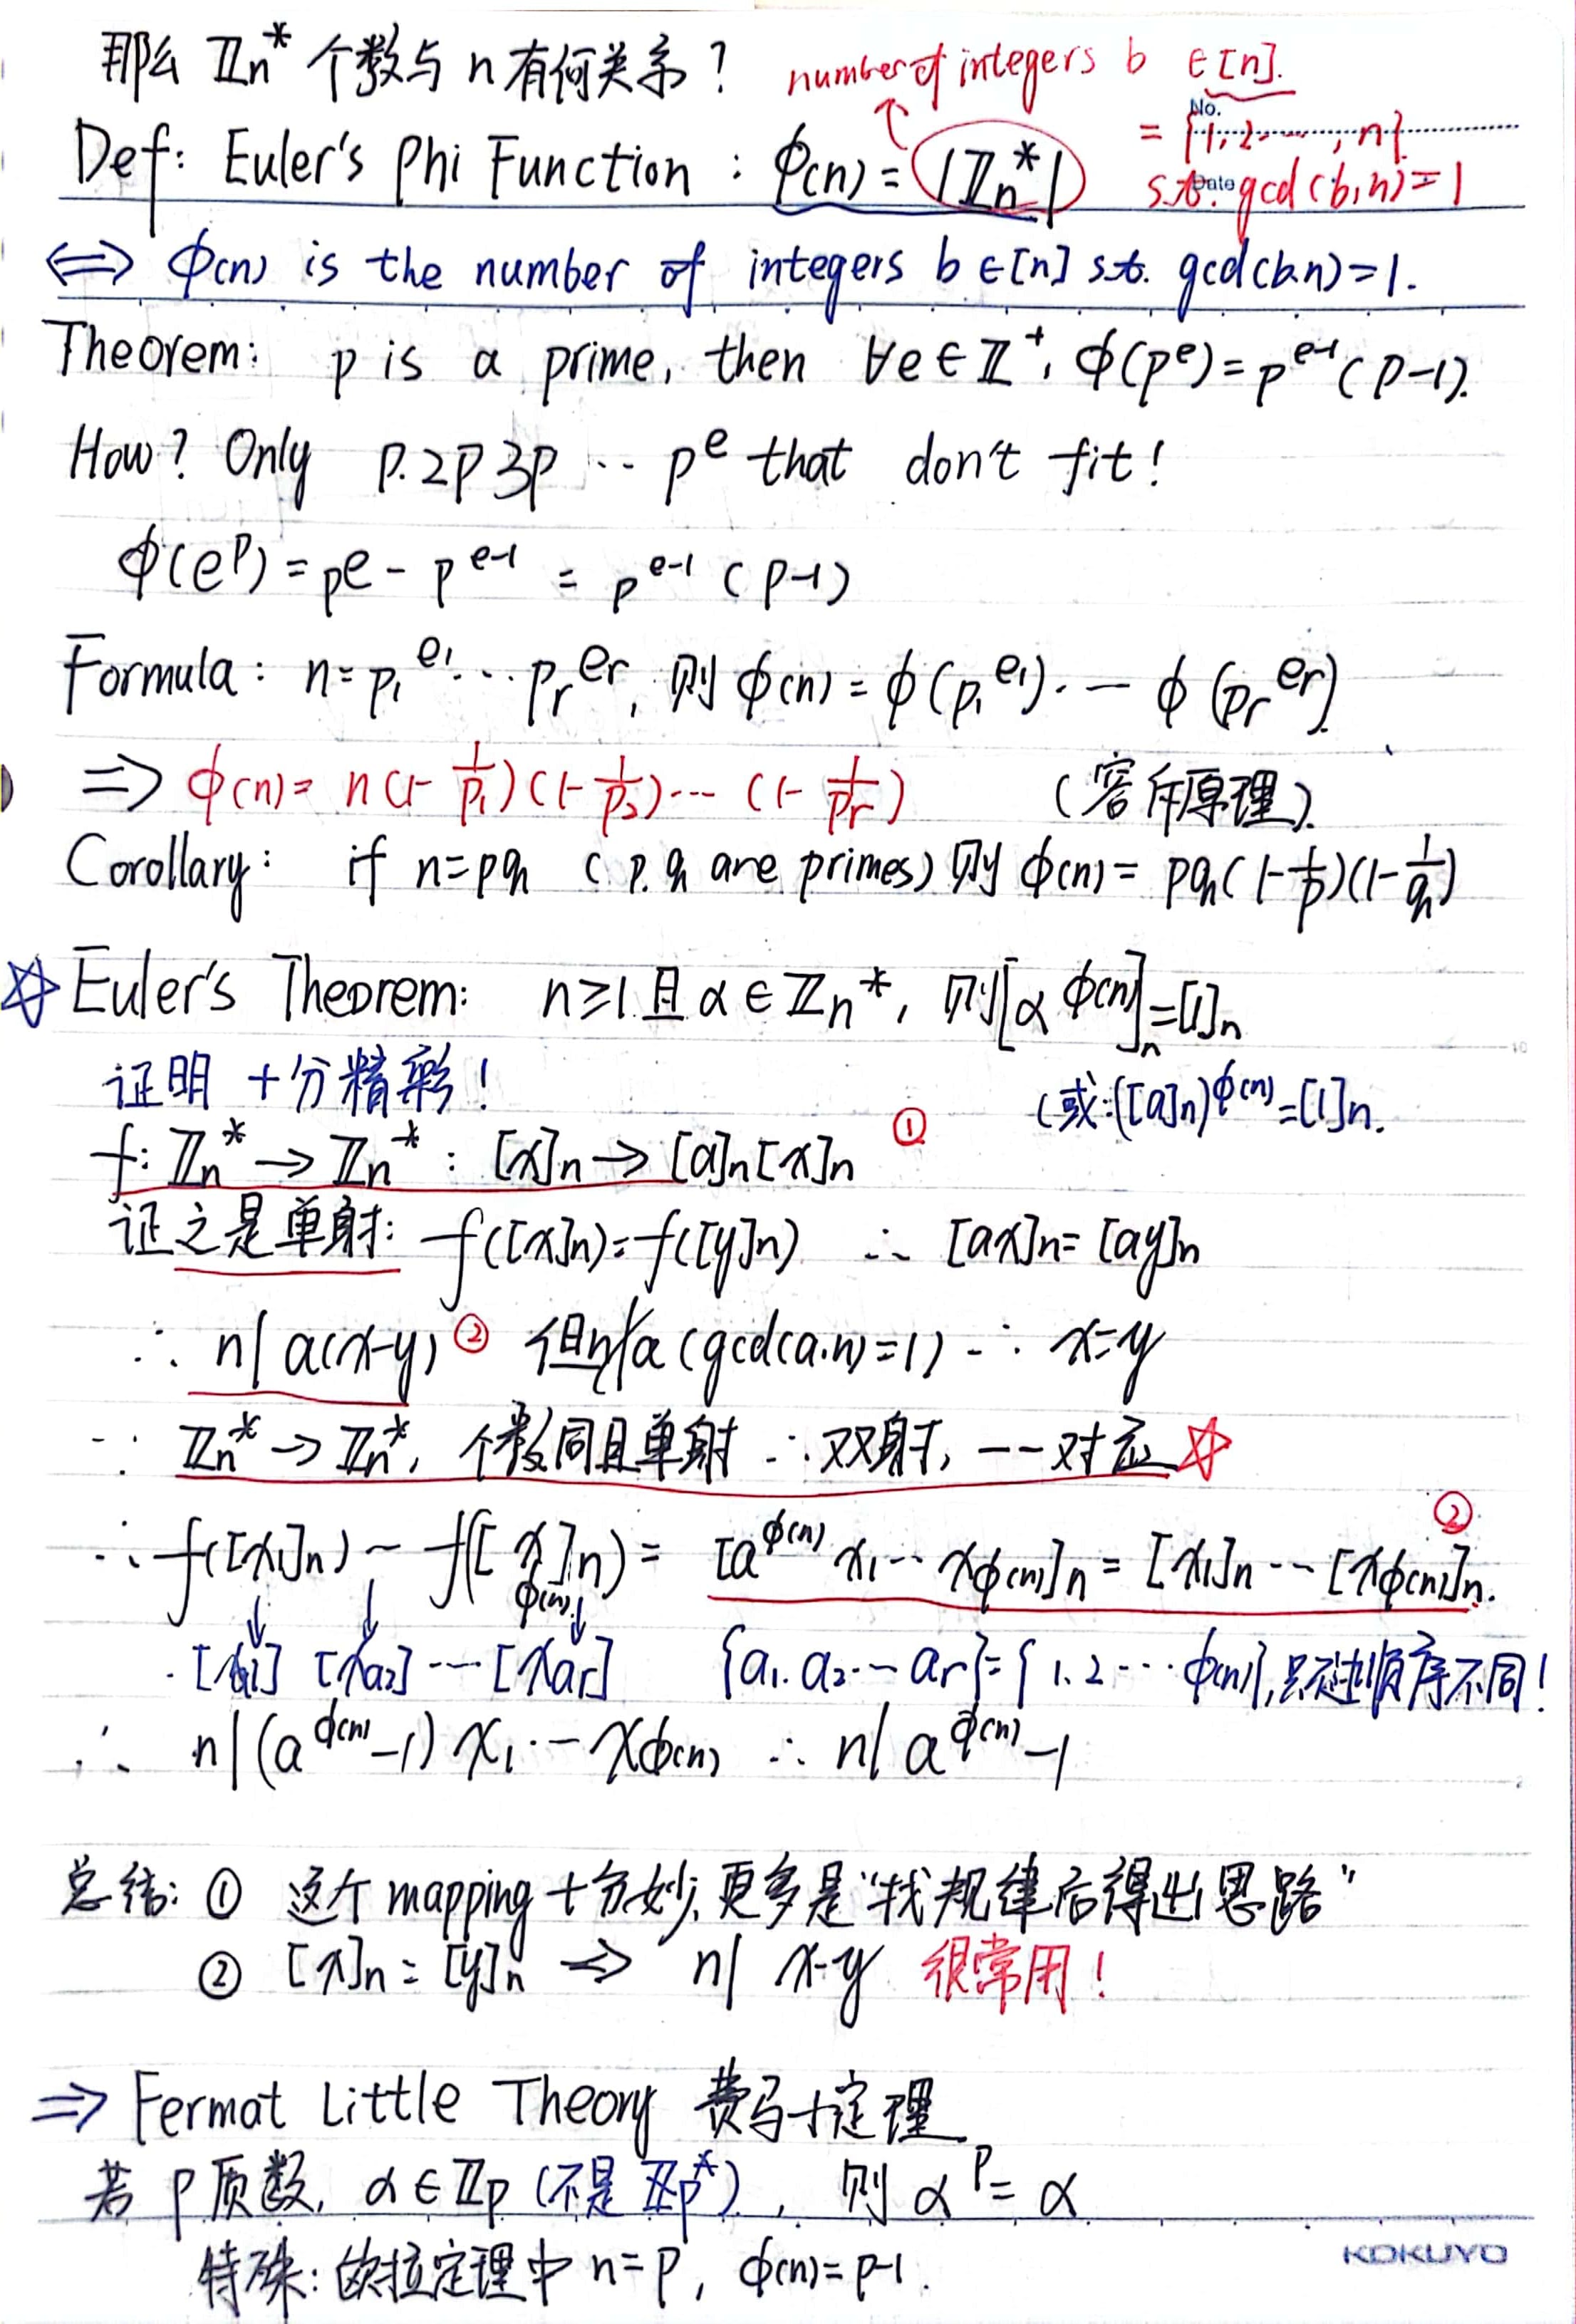 那么 ℤn* 个数与 n 有何关系？
number of integers b ∈[n].
= {1,2,...,n}
No.
Def: Euler's Phi Function : φ(n) = |ℤn*|
s.t. gcd(b,n)=1
Date
⟺ φ(n) is the number of integers b∈[n] s.t. gcd(b.n)=1.
Theorem: p is a prime, then ∀e∈ℤ⁺, φ(p^e)=p^(e-1)(p-1).
How? Only p. 2p 3p ... p^e that don't fit!
φ(e^p) = p^e - p^(e-1) = p^(e-1) (p-1)
Formula: n=p₁^e₁...pᵣ^eᵣ, 则 φ(n)=φ(p₁^e₁)....φ(pᵣ^eᵣ)
⇒ φ(n)= n(1-1/p₁)(1-1/p₂)...(1-1/pᵣ) (容斥原理).
Corollary: if n=pq (p.q are primes) 则 φ(n)= pq(1-1/p)(1-1/q)
☆ Euler's Theorem: n≥1 且 α∈ℤn*, 则[α^φ(n)]n=[1]n
证明 十分精彩！ (或:([a]n)^φ(n)=[1]n.
f: ℤn* → ℤn* : [x]n → [a]n[x]n ①
证之是单射: f([x]n)=f([y]n) ∴ [ax]n=[ay]n
∴ n| a(x-y) ② 但n∤a (gcd(a.n)=1) ∴ x=y
∵ ℤn* → ℤn*, 个数同且单射 ∴双射, 一一对应 ☆
∴ f([x₁]n) ~ f([xφ(n)]n) = [a^φ(n) x₁...xφ(n)]n = [x₁]n...[xφ(n)]n. ②
[xa₁] [xa₂] ... [xaᵣ] {a₁.a₂...aᵣ}={1.2...φ(n)},只不过顺序不同!
∴ n|(a^φ(n)-1) x₁...xφ(n) ∴ n| a^φ(n)-1
总结: ① 这个 mapping 十分妙, 更多是“找规律后得出思路”
② [x]n = [y]n ⇒ n| x-y 很常用！
⇒ Fermat Little Theory 费马小定理
若 p 质数, α∈ℤp (不是 ℤp*), 则 α^p = α
特殊: 欧拉定理中 n=p, φ(n)=p-1.
KOKUYO